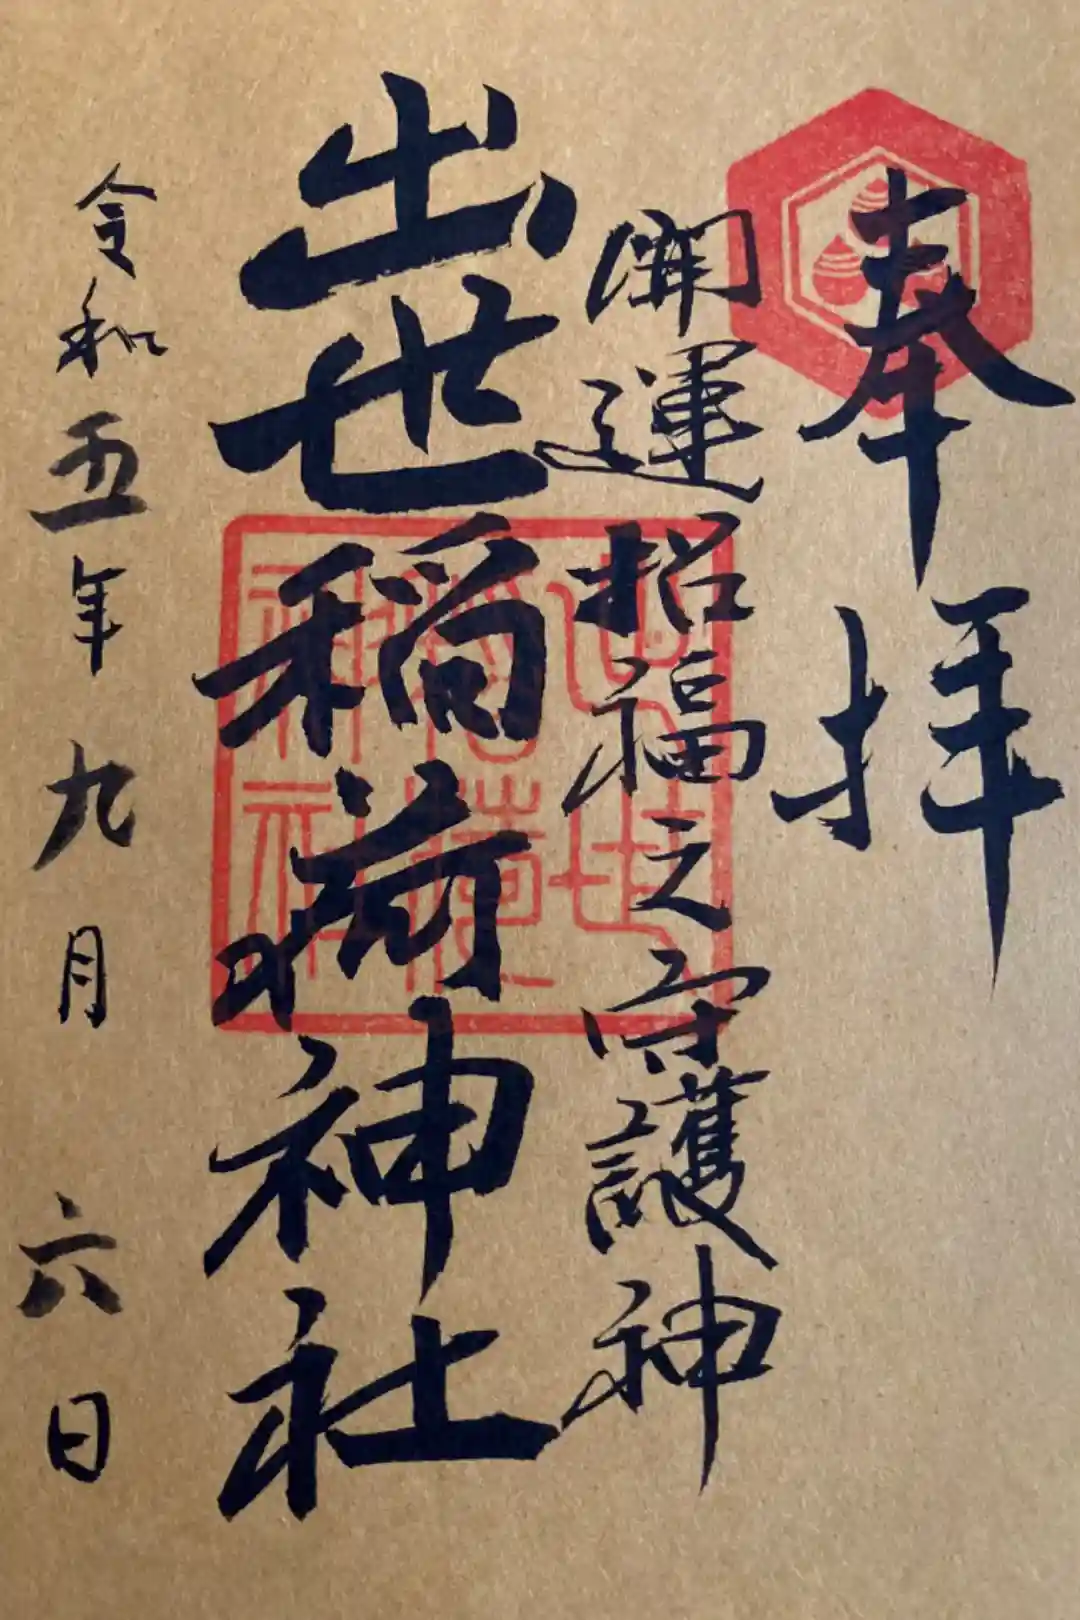 奉拝
開運招福之守護神
出世稲荷神社
令和五年九月六日
出世稲荷神社